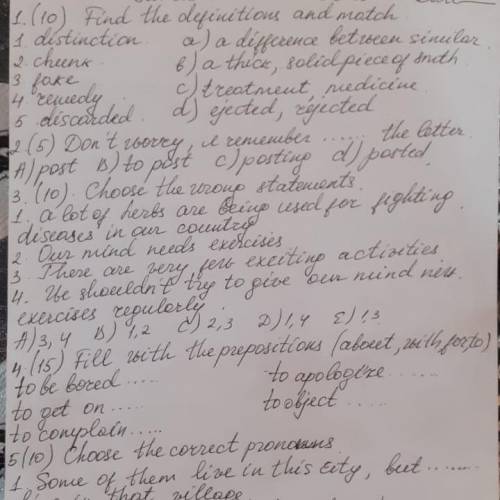 1. (10) Find the definitions and match
1 distinction a) a difference between similar
2 chunk b) a thick, solid piece of smth
3 fake c) treatment, medicine
4 remedy d) ejected, rejected
5 discarded
2 (5) Don't worry, I remember ...... the letter.
A) post B) to post C) posting d) posted
3. (10). Choose the wrong statements.
1. a lot of herbs are being used for fighting
diseases in our country
2. Our mind needs exercises
3. There are very few exciting activities
4. We shouldn't try to give our mind
exercises regularly
A) 3, 4 B) 1,2 C) 2,3 D) 1,4 E) 1,3
4. (15) Fill with the prepositions (about, with, for, to)
to be bored ..... to apologize ......
to get on ..... to object .....
to complain .....
5 (10) Choose the correct pronouns
1. Some of them live in this city, but .......
that village